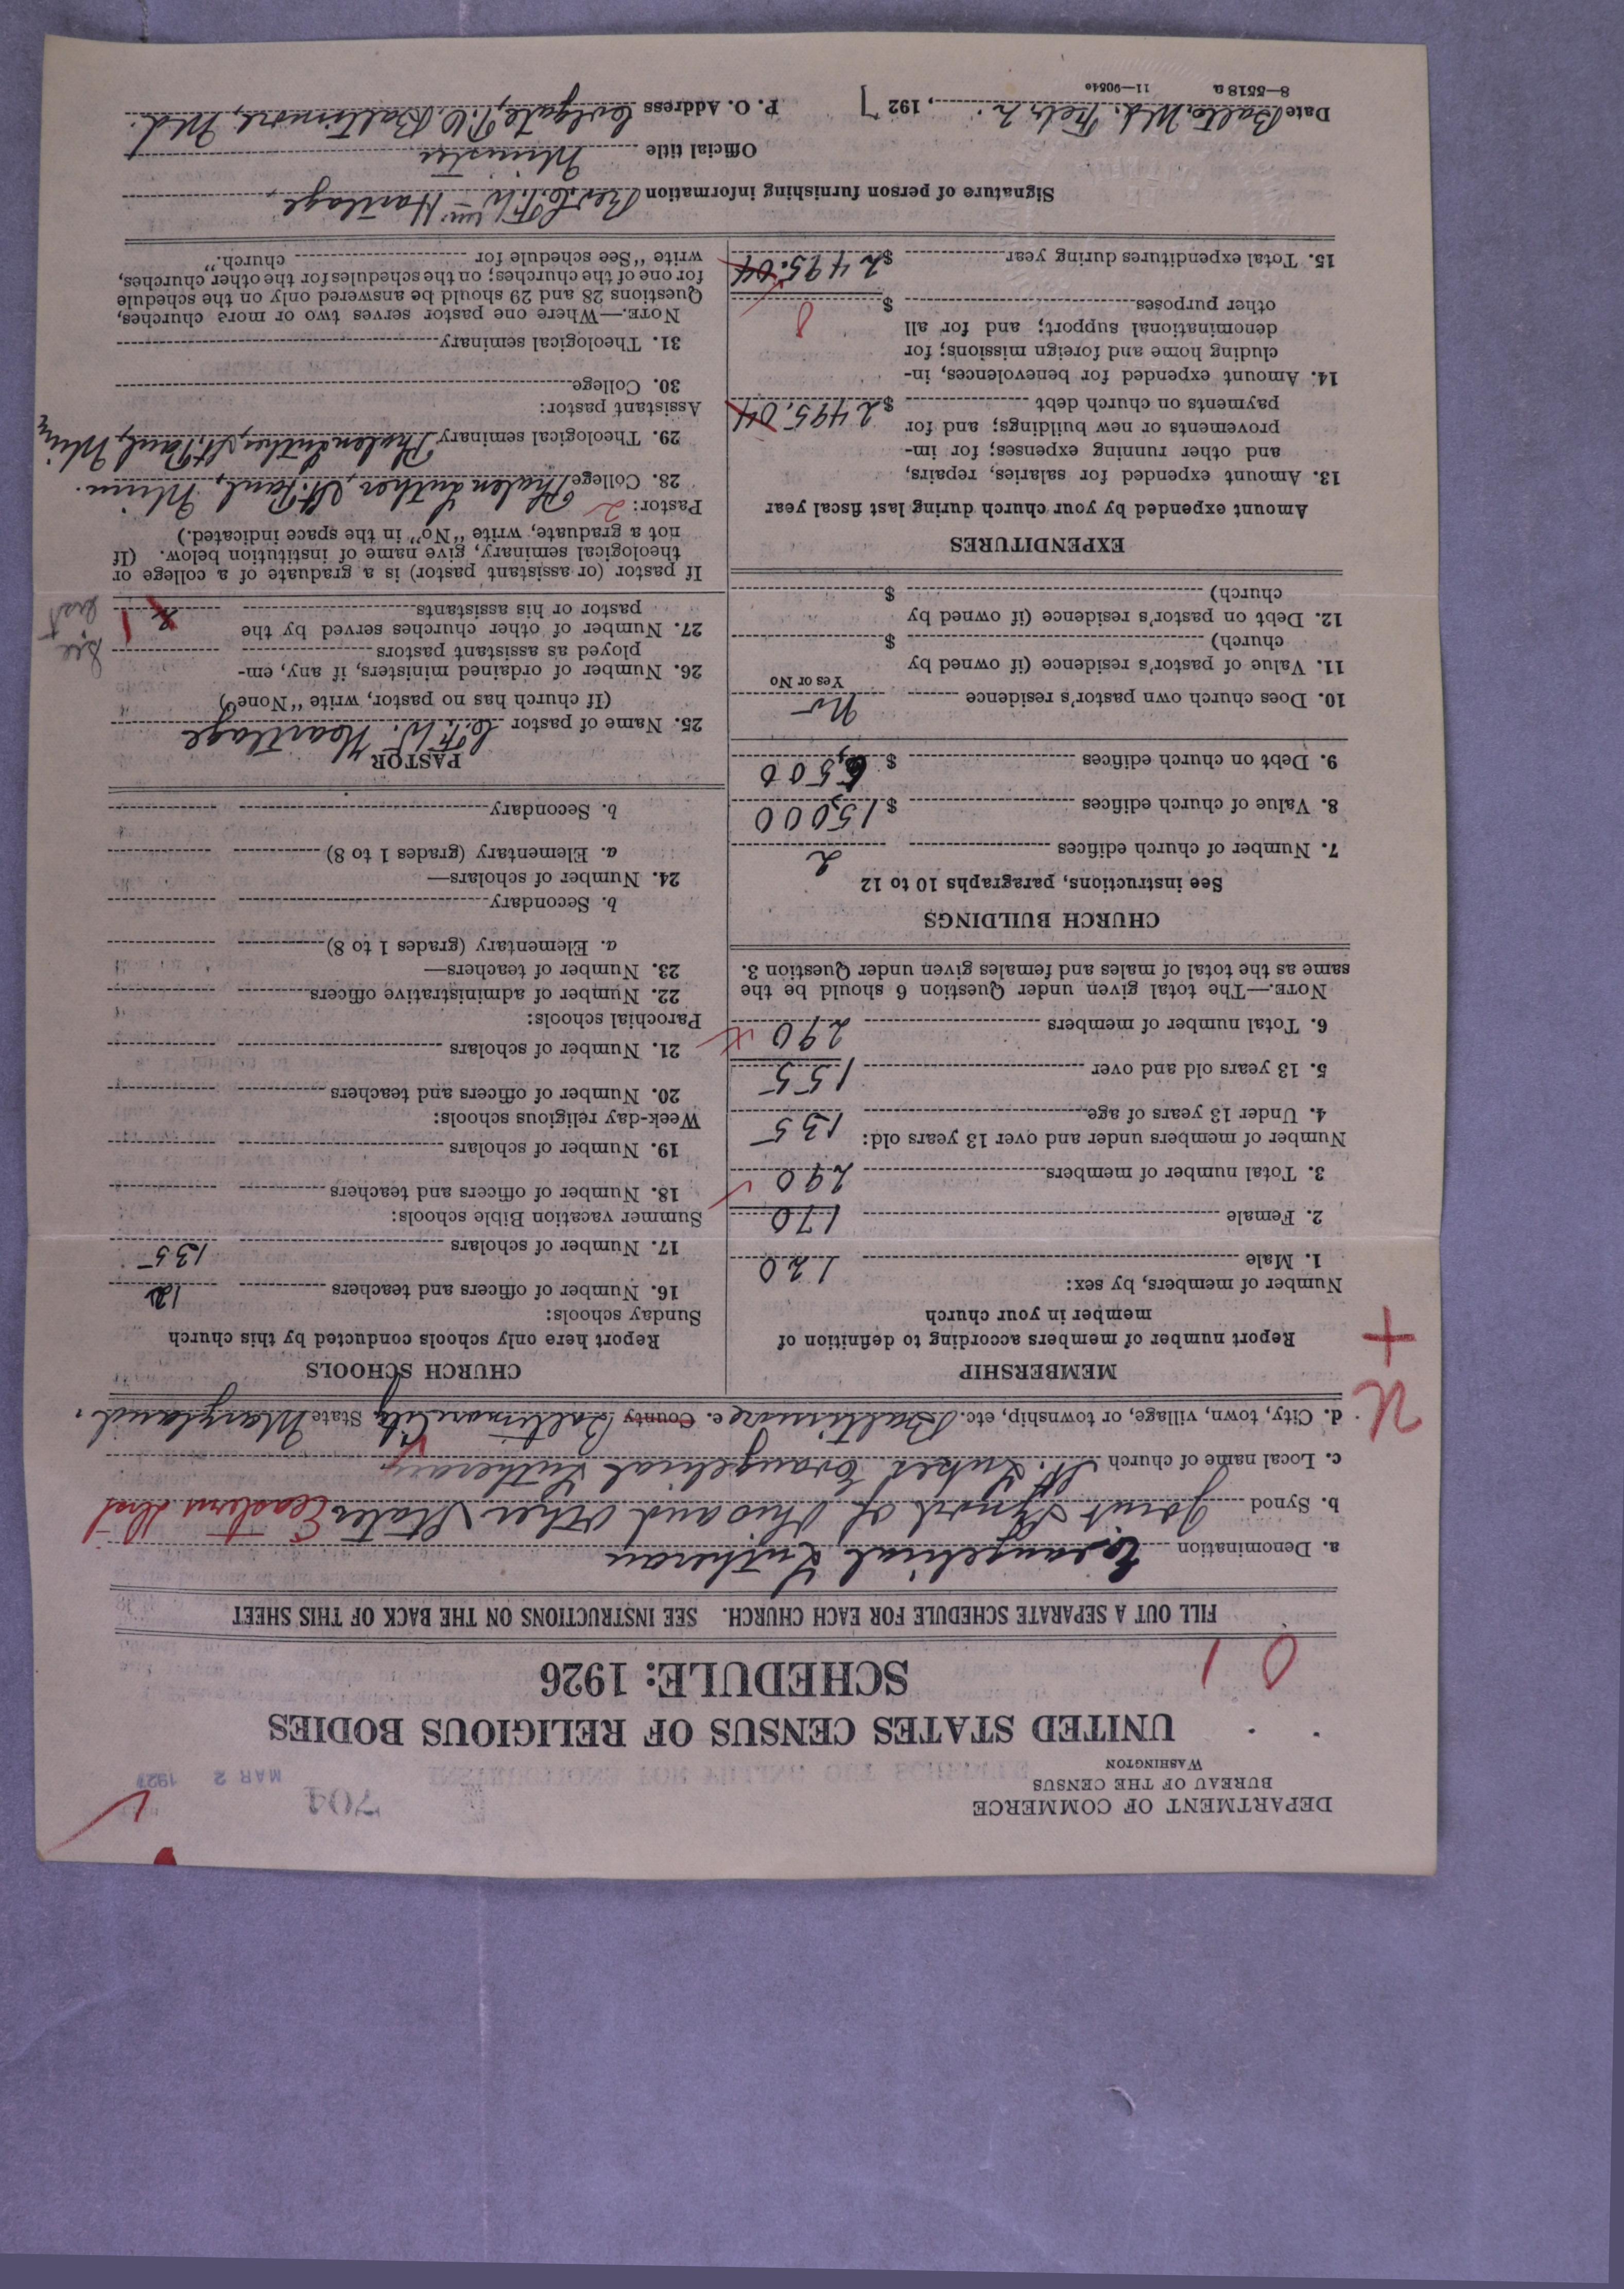 DEPARTMENT OF COMMERCE
BUREAU OF THE CENSUS
WASHINGTON
704
MAR 2 1927
UNITED STATES CENSUS OF RELIGIOUS BODIES
SCHEDULE: 1926
0 1
FILL OUT A SEPARATE SCHEDULE FOR EACH CHURCH. SEE INSTRUCTIONS ON THE BACK OF THIS SHEET
a. Denomination Evangelical Lutheran
b. Synod Joint Synod of Ohio and Other States Eastern Dist
c. Local name of church St. Lukes Evangelical Lutheran
d. City, town, village, or township, etc. Baltimore e. County Baltimore City State Maryland.
U
+
MEMBERSHIP
Report number of members according to definition of
member in your church
Number of members, by sex:
1. Male 120
2. Female 170
3. Total number of members 290
Number of members under and over 13 years old:
4. Under 13 years of age 135
5. 13 years old and over 155
6. Total number of members 290
NOTE.—The total given under Question 6 should be the
same as the total of males and females given under Question 3.
CHURCH BUILDINGS
See instructions, paragraphs 10 to 12
7. Number of church edifices 2
8. Value of church edifices $15,000
9. Debt on church edifices $6,500
10. Does church own pastor's residence No
Yes or No
11. Value of pastor's residence (if owned by
church) $
12. Debt on pastor's residence (if owned by
church) $
EXPENDITURES
Amount expended by your church during last fiscal year
13. Amount expended for salaries, repairs,
and other running expenses; for im-
provements or new buildings; and for
payments on church debt $2495.04
14. Amount expended for benevolences, in-
cluding home and foreign missions; for
denominational support; and for all
other purposes $
15. Total expenditures during year $2495.04
CHURCH SCHOOLS
Report here only schools conducted by this church
Sunday schools:
16. Number of officers and teachers 12
17. Number of scholars 135
Summer vacation Bible schools:
18. Number of officers and teachers
19. Number of scholars
Week-day religious schools:
20. Number of officers and teachers
21. Number of scholars
Parochial schools:
22. Number of administrative officers
23. Number of teachers—
a. Elementary (grades 1 to 8)
b. Secondary
24. Number of scholars—
a. Elementary (grades 1 to 8)
b. Secondary
PASTOR
25. Name of pastor C.F.W. Hartlage
(If church has no pastor, write "None")
26. Number of ordained ministers, if any, em-
ployed as assistant pastors
27. Number of other churches served by the
pastor or his assistants 1
See
If pastor (or assistant pastor) is a graduate of a college or
theological seminary, give name of institution below. (If
not a graduate, write "No" in the space indicated.)
Pastor: 2
28. College Phalen Luther, St. Paul, Minn.
29. Theological seminary Phalen Luther, St. Paul, Minn
Assistant pastor:
30. College
31. Theological seminary
NOTE.—Where one pastor serves two or more churches,
Questions 28 and 29 should be answered only on the schedule
for one of the churches; on the schedules for the other churches,
write "See schedule for church."
Signature of person furnishing information Rev. C.F. Wm. Hartlage
Official title Minister
Date Balto. Md. Feb. 2, 1927 P. O. Address Colgate P.O. Baltimore, Md.
8—5518 a 11—9054e